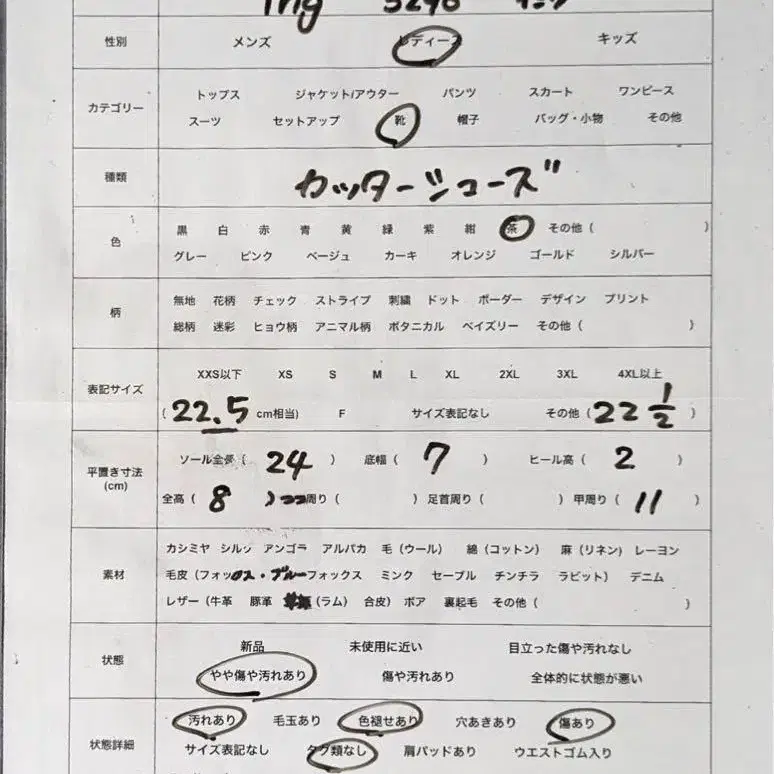 性別 メンズ レディース キッズ
カテゴリー
トップス ジャケット/アウター パンツ スカート ワンピース
スーツ セットアップ 靴 帽子 バッグ・小物 その他
種類 カッターシューズ
色
黒 白 赤 青 黄 緑 紫 紺 茶 その他 ( )
グレー ピンク ベージュ カーキ オレンジ ゴールド シルバー
柄
無地 花柄 チェック ストライプ 刺繍 ドット ボーダー デザイン プリント
総柄 迷彩 ヒョウ柄 アニマル柄 ボタニカル ペイズリー その他 ( )
表記サイズ
XXS以下 XS S M L XL 2XL 3XL 4XL以上
( 22.5 cm相当) F サイズ表記なし その他 ( 22 1/2 )
平置き寸法
(cm)
ソール全長 ( 24 ) 底幅 ( 7 ) ヒール高 ( 2 )
全高 ( 8 ) 周り ( ) 足首周り ( ) 甲周り ( 11 )
素材
カシミヤ シルク アンゴラ アルパカ 毛 (ウール) 綿 (コットン) 麻 (リネン) レーヨン
毛皮 (フォックス・ブルーフォックス ミンク セーブル チンチラ ラビット) デニム
レザー (牛革 豚革 (ラム) 合皮) ボア 裏起毛 その他 ( )
状態
新品 未使用に近い 目立った傷や汚れなし
やや傷や汚れあり 傷や汚れあり 全体的に状態が悪い
状態詳細
汚れあり 毛玉あり 色褪せあり 穴あきあり 傷あり
サイズ表記なし タグ類なし 肩パッドあり ウエストゴム入り